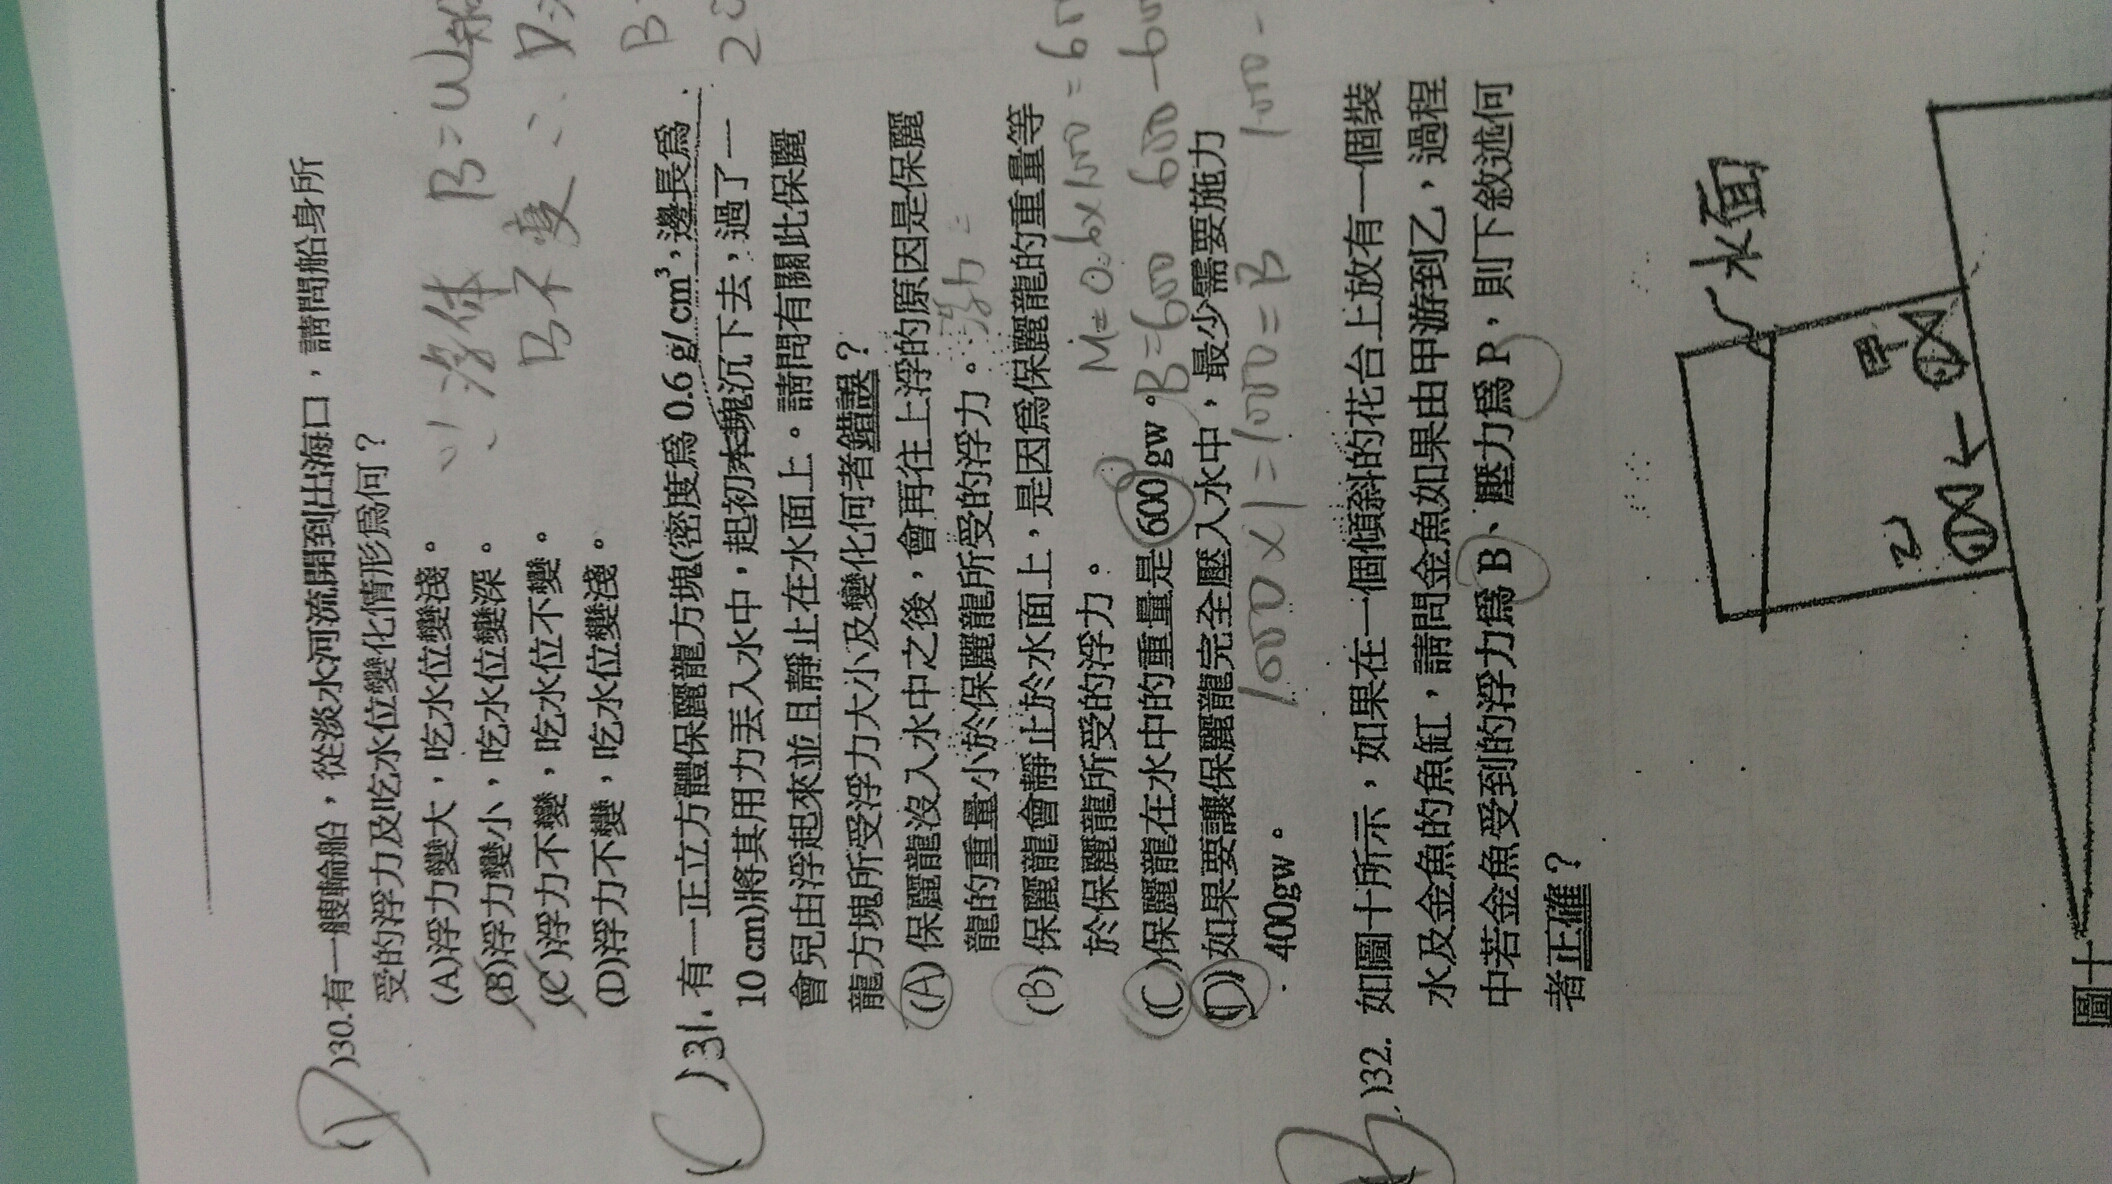 (D)30.有一艘輪船，從淡水河流開到出海口，請問船身所
受的浮力及吃水位變化情形爲何？
(A)浮力變大，吃水位變淺。
(B)浮力變小，吃水位變深。
(C)浮力不變，吃水位不變。
(D)浮力不變，吃水位變淺。
∵浮体 B=W
B不變 ∴ D
(C)31.有一正立方體保麗龍方塊(密度爲0.6 g/cm³，邊長爲
10 cm)將其用力丟入水中，起初本塊沉下去，過了一
會兒由浮起來並且靜止在水面上。請問有關此保麗
龍方塊所受浮力大小及變化何者錯誤？
(A)保麗龍沒入水中之後，會再往上浮的原因是保麗
龍的重量小於保麗龍所受的浮力。
(B)保麗龍會靜止於水面上，是因爲保麗龍的重量等
於保麗龍所受的浮力。
M=0.6×1000=6
(C)保麗龍在水中的重量是600gw。
B=600 600-600
(D)如果要讓保麗龍完全壓入水中，最少需要施力
400gw。
1000×1=1000=B
1000-
(B)32.如圖十所示，如果在一個傾斜的花台上放有一個裝
水及金魚的魚缸，請問金魚如果由甲游到乙，過程
中若金魚受到的浮力爲B、壓力爲P，則下敘述何
者正確？
水面
甲
乙
圖十